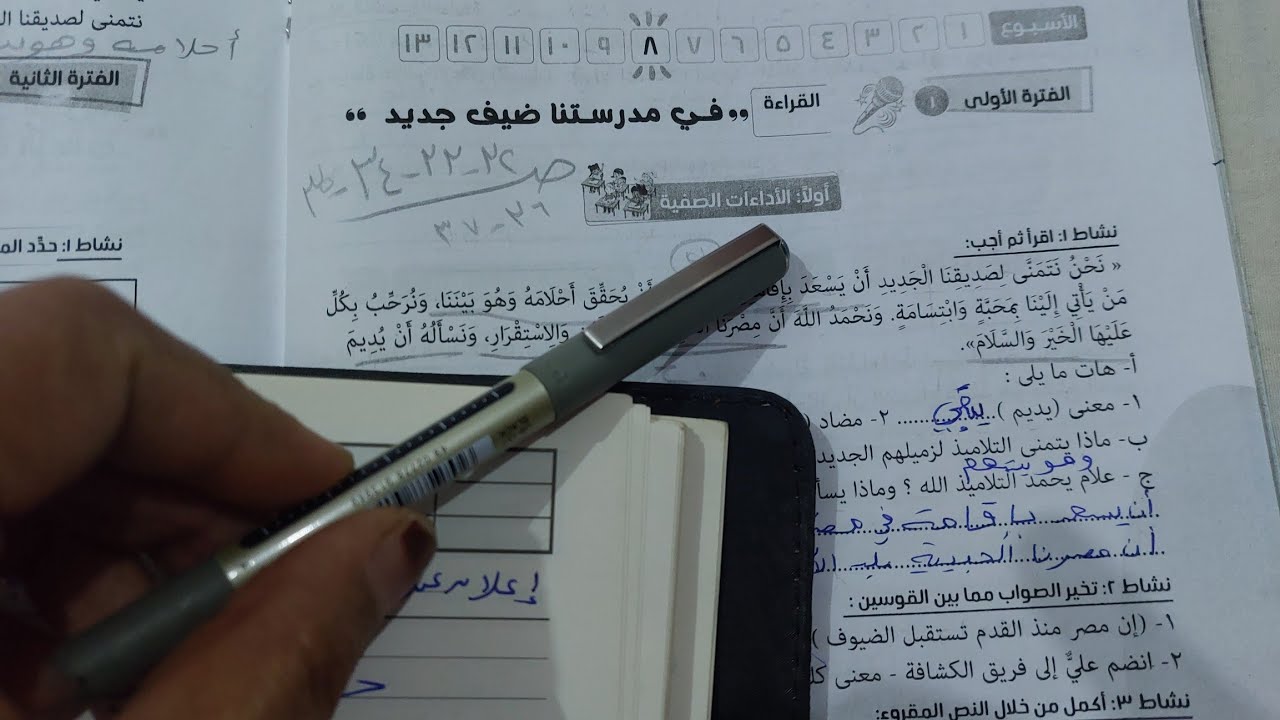 الأسبوع ١ ٢ ٣ ٤ ٥ ٦ ٧ ٨ ٩ ١٠ ١١ ١٢ ١٣
الفترة الأولى ١
القراءة
"في مدرستنا ضيف جديد"
ص ٣٢-٣٣-٣٤-
٣٦-٣٧
أولاً: الأداءات الصفية
نشاط ١: اقرأ ثم أجب:
« نَحْنُ نَتَمَنَّى لِصَدِيقِنَا الْجَدِيدِ أَنْ يَسْعَدَ أَنْ يُحَقِّقَ أَحْلَامَهُ وَهُوَ بَيْنَنَا، وَنُرَحِّبُ بِكُلِّ
مَنْ يَأْتِي إِلَيْنَا بِمَحَبَّةٍ وَابْتِسَامَةٍ. وَنَحْمَدُ اللَّهَ أَنَّ مِصْرَنَا وَالِاسْتِقْرَارِ، وَنَسْأَلُهُ أَنْ يُدِيمَ
عَلَيْهَا الْخَيْرَ وَالسَّلَامَ».
أ- هات ما يلى :
١- معنى (يديم )..يبقي........ ٢- مضاد (
ب- ماذا يتمنى التلاميذ لزميلهم الجديد
وهو بينهم
ج - علام يحمد التلاميذ الله ؟ وماذا يسأ
أن يسعد بإقامة في مصر
أن مصرنا الحبيبة بلد
نشاط ٢: تخير الصواب مما بين القوسين :
١- (إن مصر منذ القدم تستقبل الضيوف )
٢- انضم عليٌّ إلى فريق الكشافة - معنى كل
نشاط ٣: أكمل من خلال النص المقروء:
نتمنى لصديقنا ال
أحلامه وهو بي
الفترة الثانية
نشاط ١: حدِّد الم